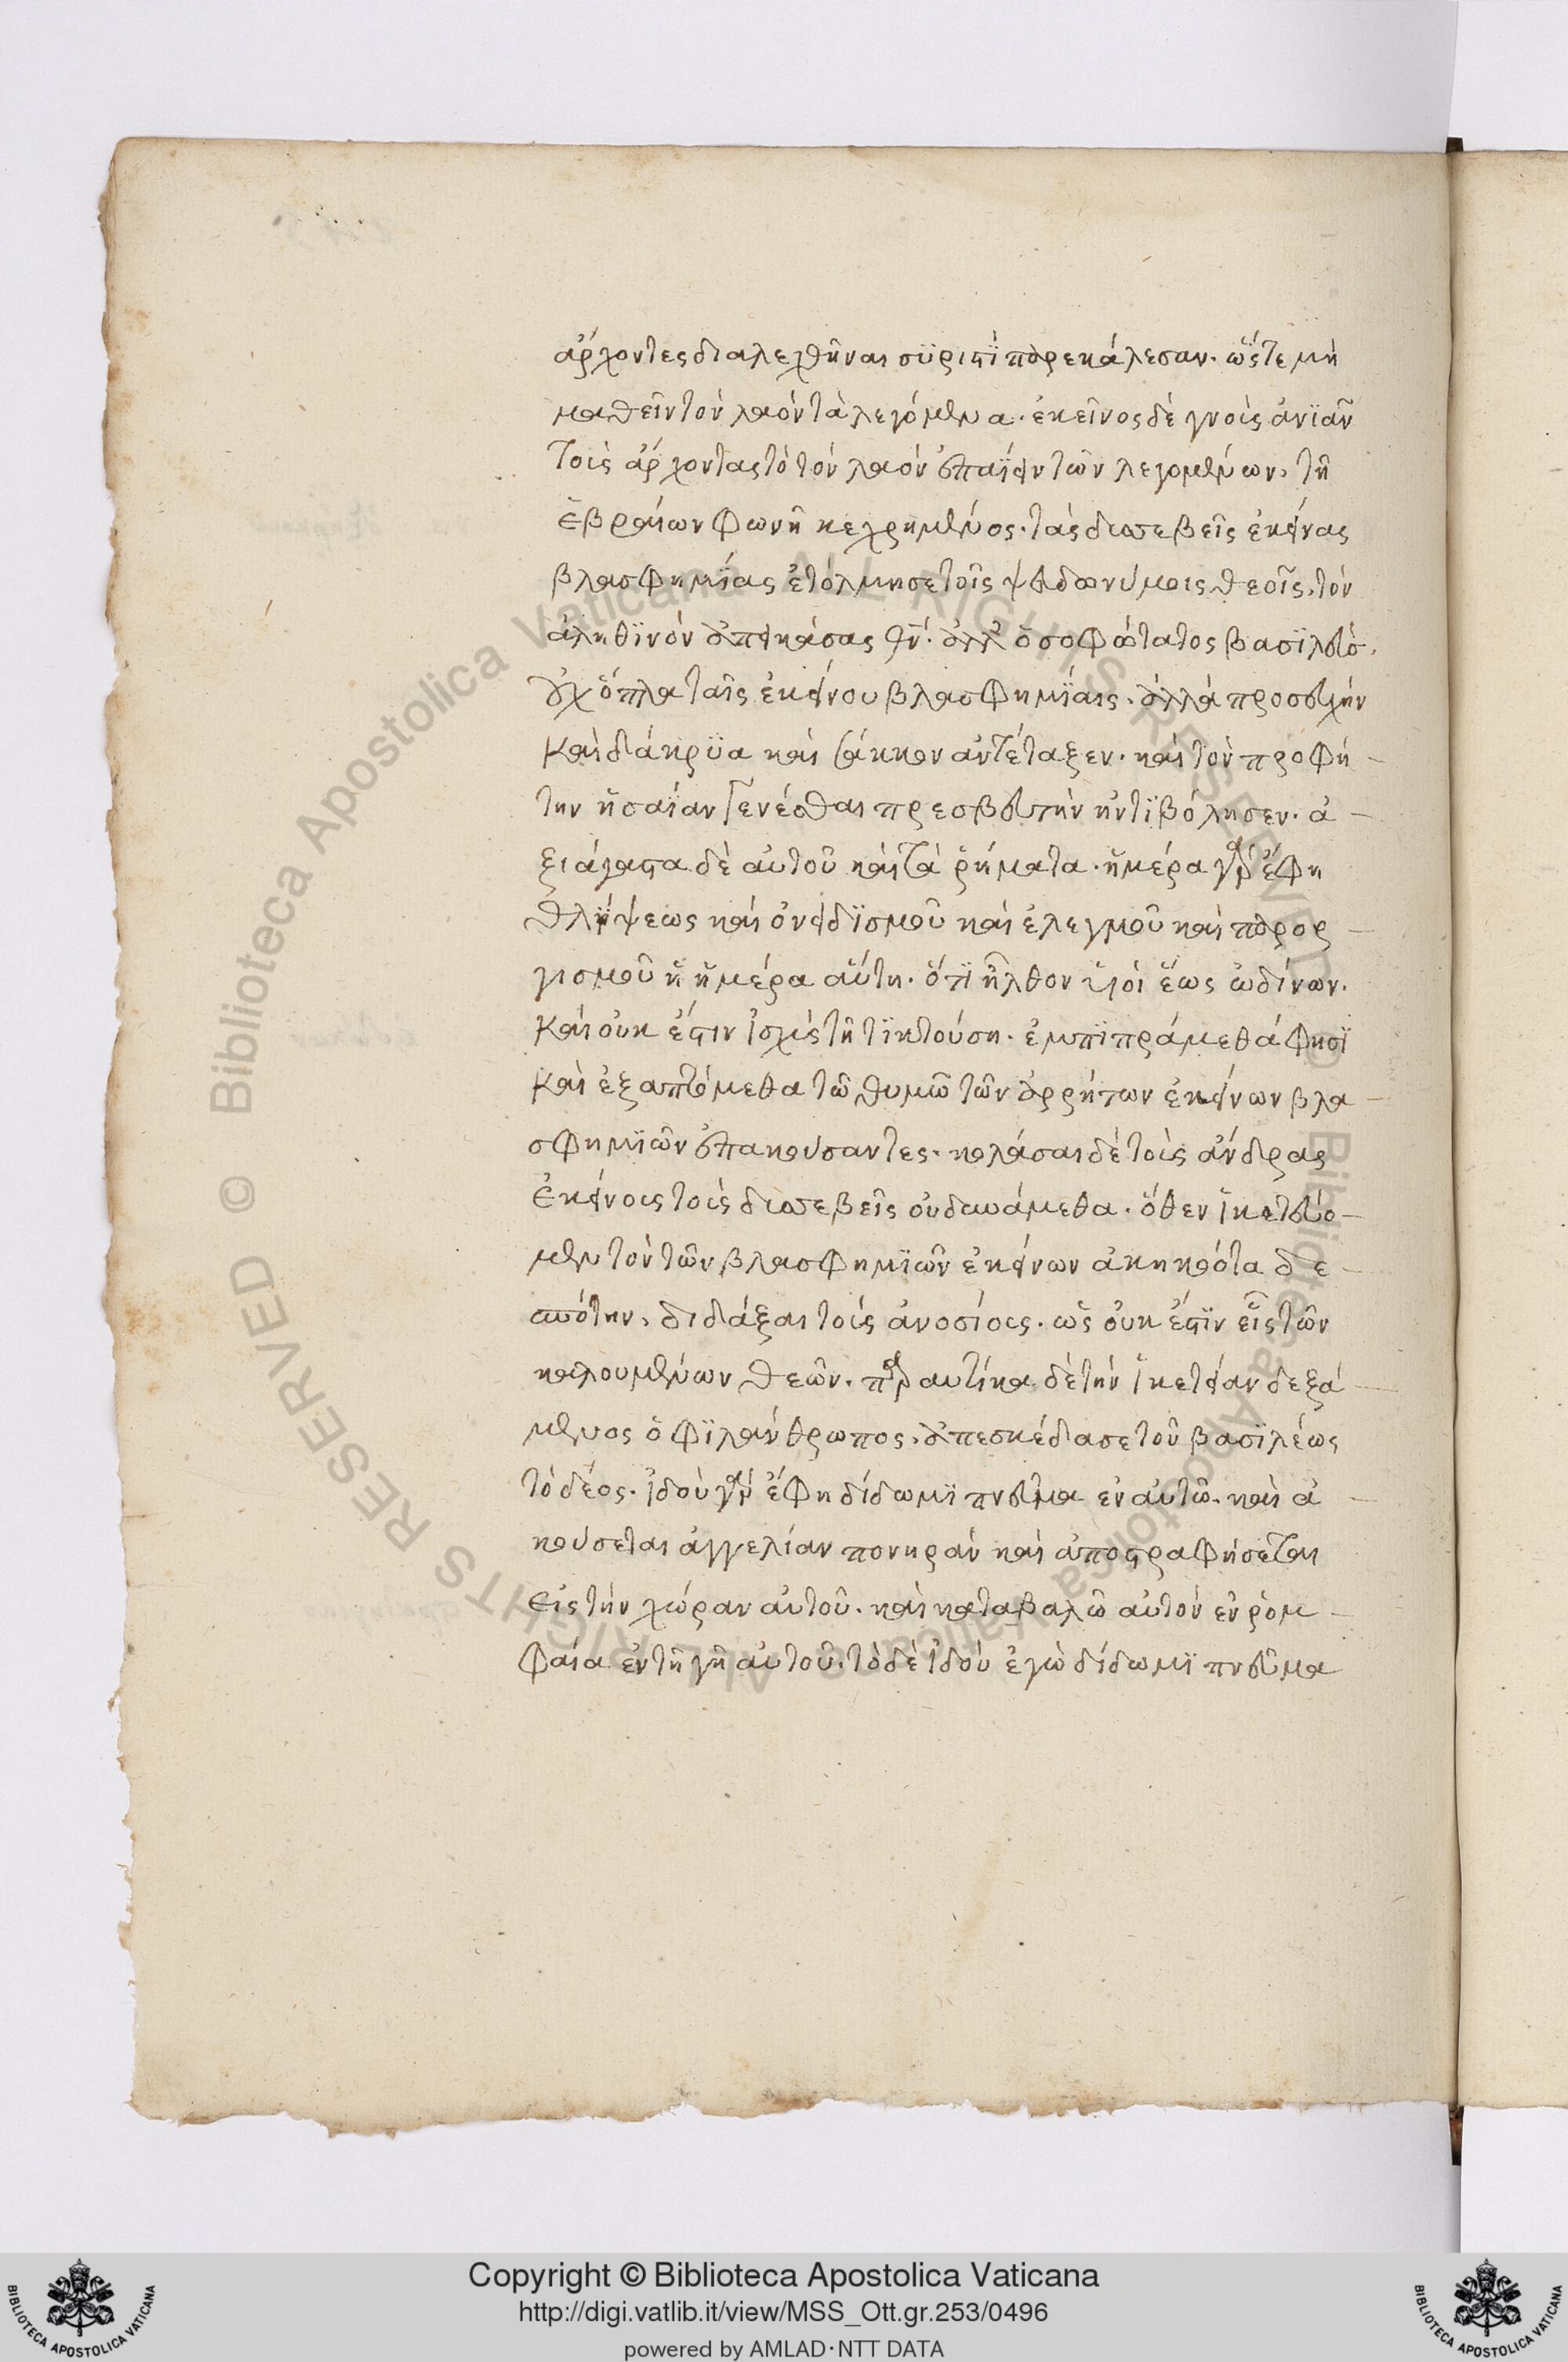 ἄρχοντες διαλεχθῆναι σϋριστὶ παρεκάλεσαν· ὥστε μὴ
μαθεῖν τὸν λαὸν τὰ λεγόμενα· ἐκεῖνος δὲ γνοὺς ἀνϊᾶν
τοὺς ἄρχοντας τὸ τὸν λαὸν ἐπαΐειν τῶν λεγομένων, τῆ
ἑβραίων φωνῆ κεχρημένος· τὰς δυσσεβεῖς ἐκείνας
βλασφημΐας ἐτόλμησε τοῖς ψευδωνύμοις θεοῖς, τὸν
ἀληθϊνὸν ἀπεικάσας θν̄· ἀλλ' ὁ σοφώτατος βασϊλεὺς,
οὐχ ὅπλα ταῖς ἐκείνου βλασφημΐαις, ἀλλὰ προσευχὴν
καὶ δάκρϋα καὶ σάκκον ἀντέταξεν· καὶ τὸν προφή
την ἡσαΐαν γενέσθαι πρεσβευτὴν ἠντϊβόλησεν· ἀ
ξιάγαστα δὲ αὐτοῦ καὶ τὰ ῥήματα· ἡμέρα γὰρ ἔφη
θλΐψεως καὶ ὀνειδϊσμοῦ καὶ ἐλεγμοῦ καὶ παρορ
γισμοῦ ἡ ἡμέρα αὕτη· ὅτϊ ἦλθον υἱοὶ ἕως ὠδίνων·
καὶ οὐκ ἔστιν ἰσχὺς τῆ τϊκτούση· ἐμπϊπράμεθά φησϊ
καὶ ἐξαπτόμεθα τῶ θυμῶ τῶν ἀρρήτων ἐκείνων βλα
σφημϊῶν ἐπακούσαντες· κολάσαι δὲ τοὺς ἄνδρας
ἐκείνους τοὺς δυσσεβεῖς οὐ δυνάμεθα· ὅθεν ἱκετεύο
μεν τὸν τῶν βλασφημϊῶν ἐκείνων ἀκηκοότα δε
σπότην, διδάξαι τοὺς ἀνοσίους· ὡς οὐκ ἔστϊν εἷς τῶν
καλουμένων θεῶν· παραυτίκα δὲ τὴν ἱκετείαν δεξά
μενος ὁ φϊλάνθρωπος, ἀπεσκέδασε τοῦ βασϊλέως
τὸ δέος· ἰδοὺ γὰρ ἔφη δίδωμϊ πνεῦμα ἐν αὐτῶ· καὶ ἀ
κούσεται ἀγγελίαν πονηρὰν καὶ ἀποστραφήσεται
εἰς τὴν χώραν αὐτοῦ· καὶ καταβαλῶ αὐτὸν ἐν ῥομ
φαία ἐν τῆ γῆ αὐτοῦ· τὸ δὲ ἰδοὺ ἐγὼ δίδωμϊ πνεῦμα
Copyright © Biblioteca Apostolica Vaticana
http://digi.vatlib.it/view/MSS_Ott.gr.253/0496
powered by AMLAD·NTT DATA